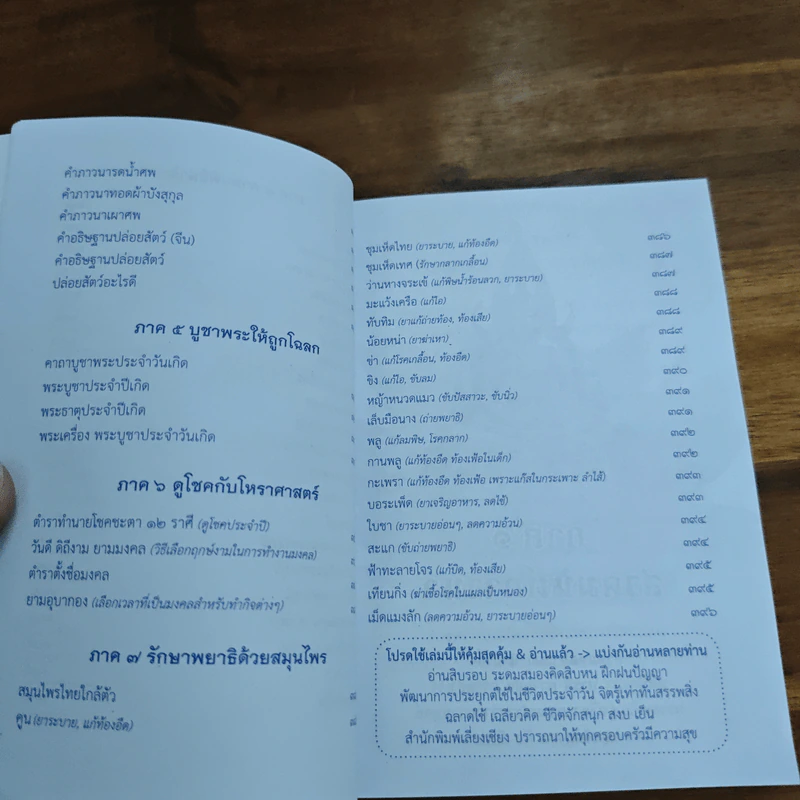 คำภาวนารดน้ำศพ
คำภาวนาทอดผ้าบังสุกุล
คำภาวนาเผาศพ
คำอธิษฐานปล่อยสัตว์ (จีน)
คำอธิษฐานปล่อยสัตว์
ปล่อยสัตว์อะไรดี
ภาค ๕ บูชาพระให้ถูกโฉลก
คาถาบูชาพระประจำวันเกิด
พระบูชาประจำปีเกิด
พระธาตุประจำปีเกิด
พระเครื่อง พระบูชาประจำวันเกิด
ภาค ๖ ดูโชคกับโหราศาสตร์
ตำราทำนายโชคชะตา ๑๒ ราศี (ดูโชคประจำปี)
วันดี ดิถีงาม ยามมงคล (วิธีเลือกฤกษ์งามในการทำงานมงคล)
ตำราตั้งชื่อมงคล
ยามอุบากอง (เลือกเวลาที่เป็นมงคลสำหรับทำกิจต่างๆ)
ภาค ๗ รักษาพยาธิด้วยสมุนไพร
สมุนไพรไทยใกล้ตัว
คูน (ยาระบาย, แก้ท้องอืด)
ชุมเห็ดไทย (ยาระบาย, แก้ท้องอืด) ๓๘๖
ชุมเห็ดเทศ (รักษากลากเกลื้อน) ๓๘๗
ว่านหางจระเข้ (แก้พิษน้ำร้อนลวก, ยาระบาย) ๓๘๗
มะแว้งเครือ (แก้ไอ) ๓๘๘
ทับทิม (ยาแก้ถ่ายท้อง, ท้องเสีย) ๓๘๘
น้อยหน่า (ยาฆ่าเหา) ๓๘๙
ข่า (แก้โรคเกลื้อน, ท้องอืด) ๓๘๙
ขิง (แก้ไอ, ขับลม) ๓๙๐
หญ้าหนวดแมว (ขับปัสสาวะ, ขับนิ่ว) ๓๙๑
เล็บมือนาง (ถ่ายพยาธิ) ๓๙๑
พลู (แก้ลมพิษ, โรคกลาก) ๓๙๒
กานพลู (แก้ท้องอืด ท้องเฟ้อในเด็ก) ๓๙๒
กะเพรา (แก้ท้องอืด ท้องเฟ้อ เพราะแก๊สในกระเพาะ ลำไส้) ๓๙๓
บอระเพ็ด (ยาเจริญอาหาร, ลดไข้) ๓๙๓
ใบชา (ยาระบายอ่อนๆ, ลดความอ้วน) ๓๙๔
สะแก (ขับถ่ายพยาธิ) ๓๙๔
ฟ้าทะลายโจร (แก้บิด, ท้องเสีย) ๓๙๕
เทียนกิ่ง (ฆ่าเชื้อโรคในแผลเป็นหนอง) ๓๙๕
เม็ดแมงลัก (ลดความอ้วน, ยาระบายอ่อนๆ) ๓๙๖
โปรดใช้เล่มนี้ให้คุ้มสุดคุ้ม & อ่านแล้ว -> แบ่งกันอ่านหลายท่าน
อ่านสิบรอบ ระดมสมองคิดสิบหน ฝึกฝนปัญญา
พัฒนาการประยุกต์ใช้ในชีวิตประจำวัน จิตรู้เท่าทันสรรพสิ่ง
ฉลาดใช้ เฉลียวคิด ชีวิตจักสนุก สงบ เย็น
สำนักพิมพ์เลี่ยงเชียง ปรารถนาให้ทุกครอบครัวมีความสุข